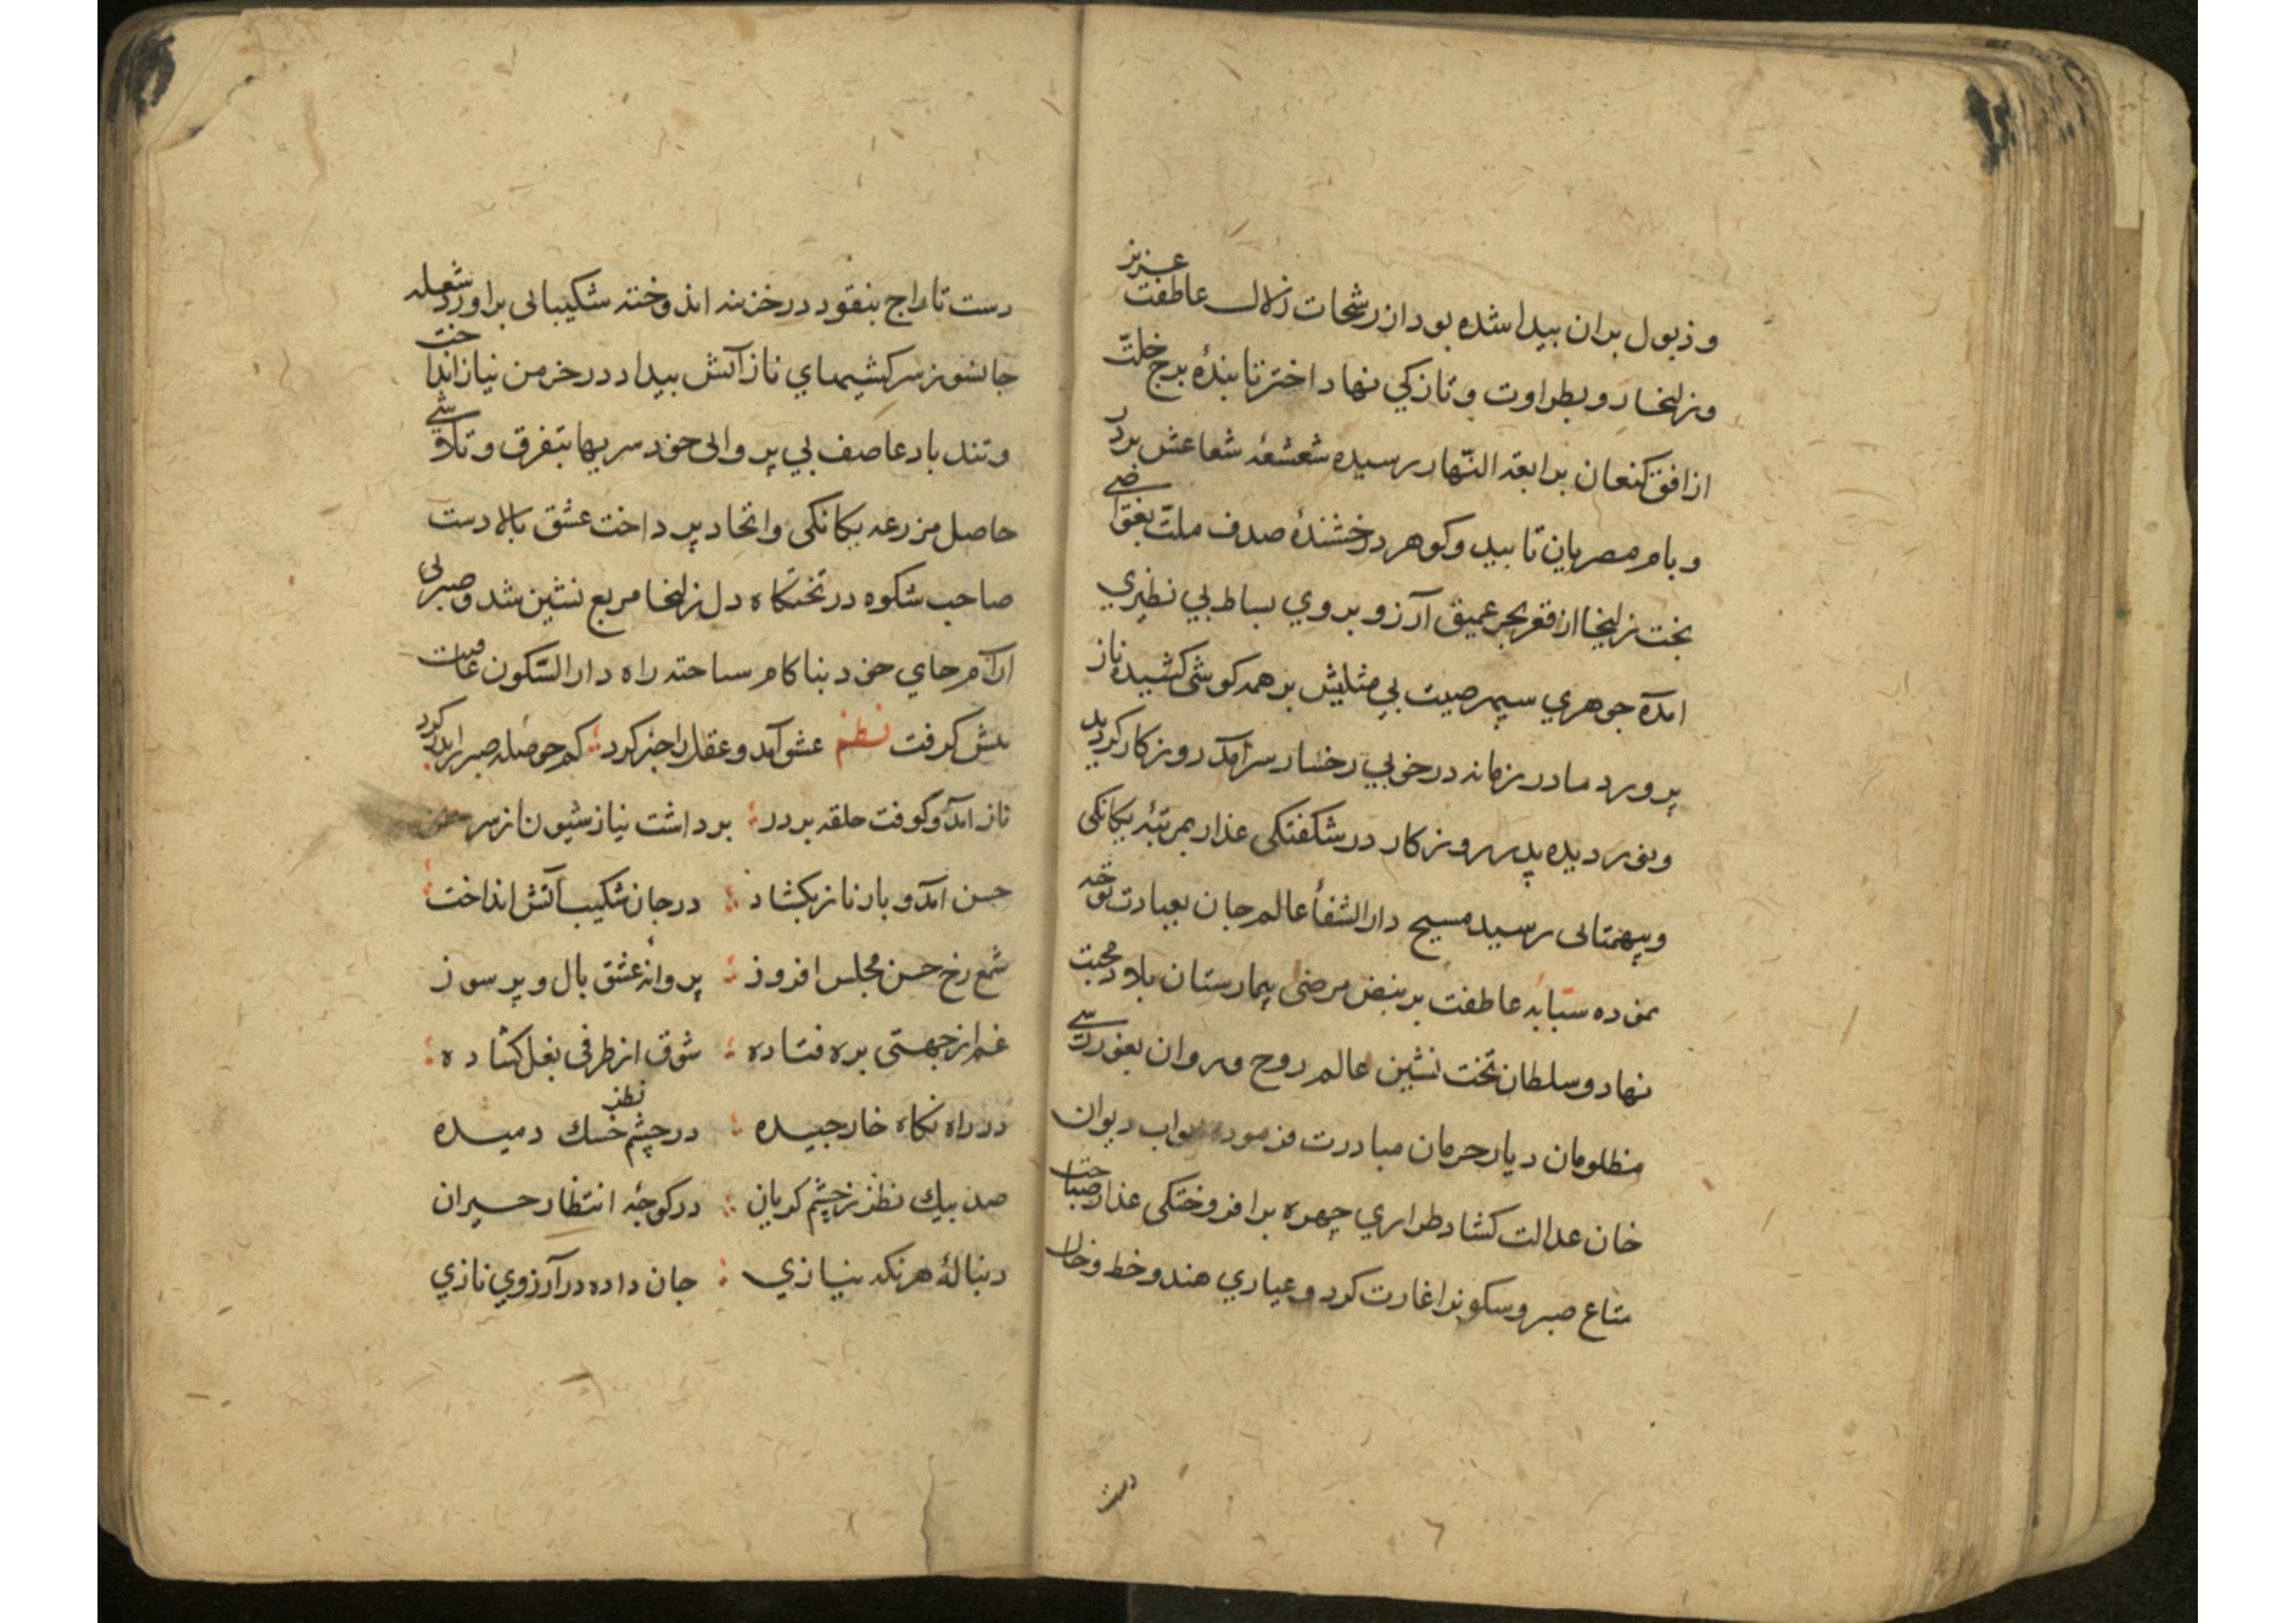 و ذبول بران بیدا شده بود از رشحات زلال عاطفت عزیز
و زلیخا رو بطراوت و تازکی نهاد اختر تابندهٔ برج خلّت
از افق کنعان برابعة النّهار رسیده شعشعهٔ شعاعش بر در
و بام مصریان تابید و کوهر درخشندهٔ صدف ملّت بغوّاصی
بخت زلیخا از قعر بحر عمیق آرزو بروی بساط بی نظیری
آمده جوهری سپهر صیت بی مثلیش بر همه کوشی کشیده ناز
پرورد مادر زمانه در خوبی رخسار سرآمد روزکار کردید
و نور دیده پدر روزکار در شکفتکی عذار بمرتبهٔ یکانکی
و بیهمتائی رسید مسیح دار الشفأ عالم جان بعیادت توجّه
نموده سبّابه عاطفت بر نبض مرضی بیمارستان بلاد محبت
نهاد و سلطان تخت نشین عالم روح و روان بغوررسی
مظلومان دیار حرمان مبادرت فرموده ابواب دیوان
خان عدالت کشاد طراری چهره برافروختکی عذار صباحت
متاع صبر و سکونرا غارت کرد و عیاری هندو خط و خال
دست
دست تاراج بنقود در خزینه اندوخته شکیبائی براورد شعله
جانسوز سرکشیهای ناز آتش بیداد در خرمن نیاز انداخت
و تند باد عاصف بی پروائی خودسریها بتفرق و تلاشی
حاصل مزرعه یکانکی و اتحاد پرداخت عشق بالادست
صاحب شکوه در تختکاه دل زلیخا مربع نشین شد و صبر بی
آرام جای خود بناکام ساخته راه دار السّکون عافیت
پیش کرفت نظم عشق آمد و عقل را خبر کرد کم حوصله صبر را بدر کرد
ناز آمد و کوفت حلقه بر در برداشت نیاز شیون از سر
حسن آمد و بار ناز بکشاد در جان شکیب آتش انداخت
شمع رخ حسن مجلس افروز پروانهٔ عشق بال و پر سوز
غم از جهتی بره فتاده شوق از طرفی بغل کشاده
در راه نکاه خار چیده در چشم نظر خسك دمیده
صد بیك نظر ز چشم کریان در کوچهٔ انتظار حیران
دنبالهٔ هر نکه نیازی جان داده در آرزوی نازی